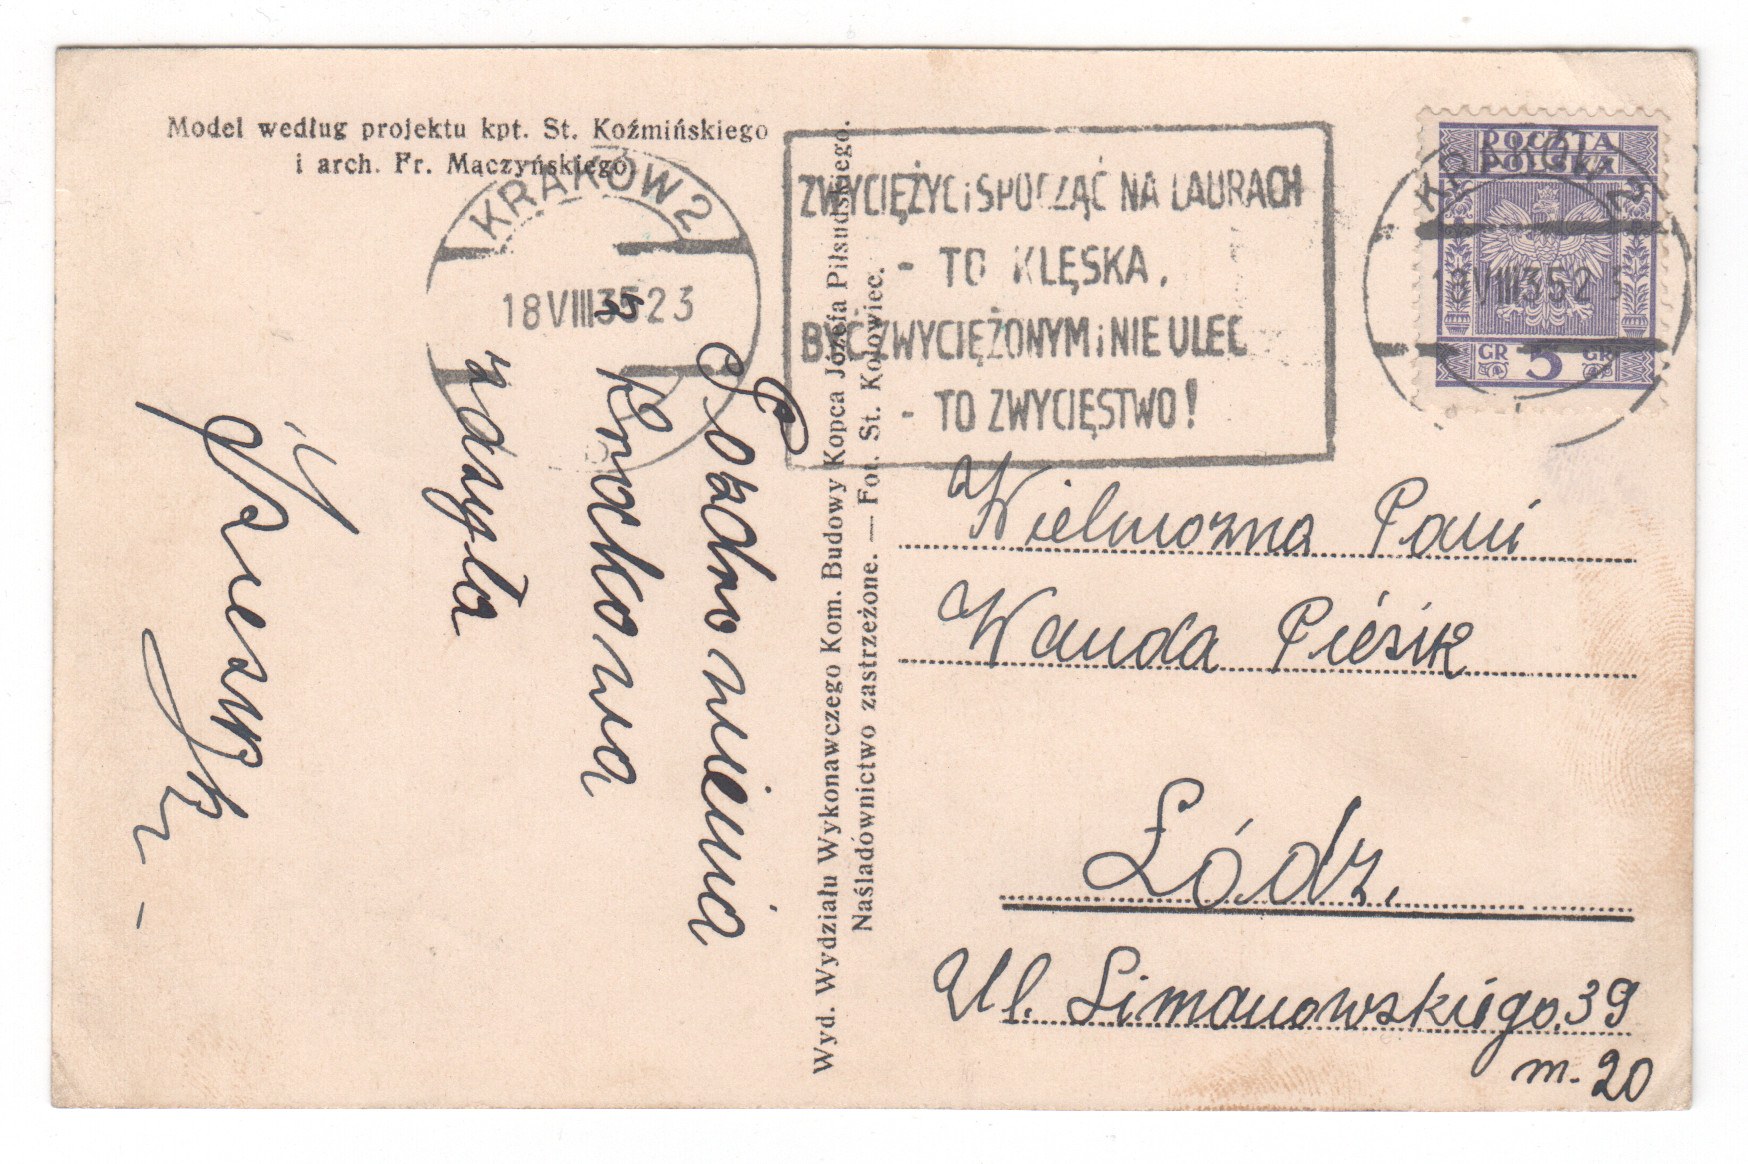 Model według projektu kpt. St. Koźmińskiego
i arch. Fr. Mączyńskiego.
KRAKÓW 2
18 VIII 35 23
ZWYCIĘŻYĆ i SPOCZĄĆ NA LAURACH
- TO KLĘSKA,
BYĆ ZWYCIĘŻONYM i NIE ULEC
- TO ZWYCIĘSTWO!
POCZTA
POLSKA
GR 5 GR
KRAKÓW 2
18 VIII 35 23
Pozdrowienia
z Krakowa
zasyła
Wyd. Wydziału Wykonawczego Kom. Budowy Kopca Józefa Piłsudskiego.
Naśladownictwo zastrzeżone. — Fot. St. Kolowiec.
Wielmozna Pani
Wanda
Łódz.
Ul. Limanowskiego. 39
m. 20